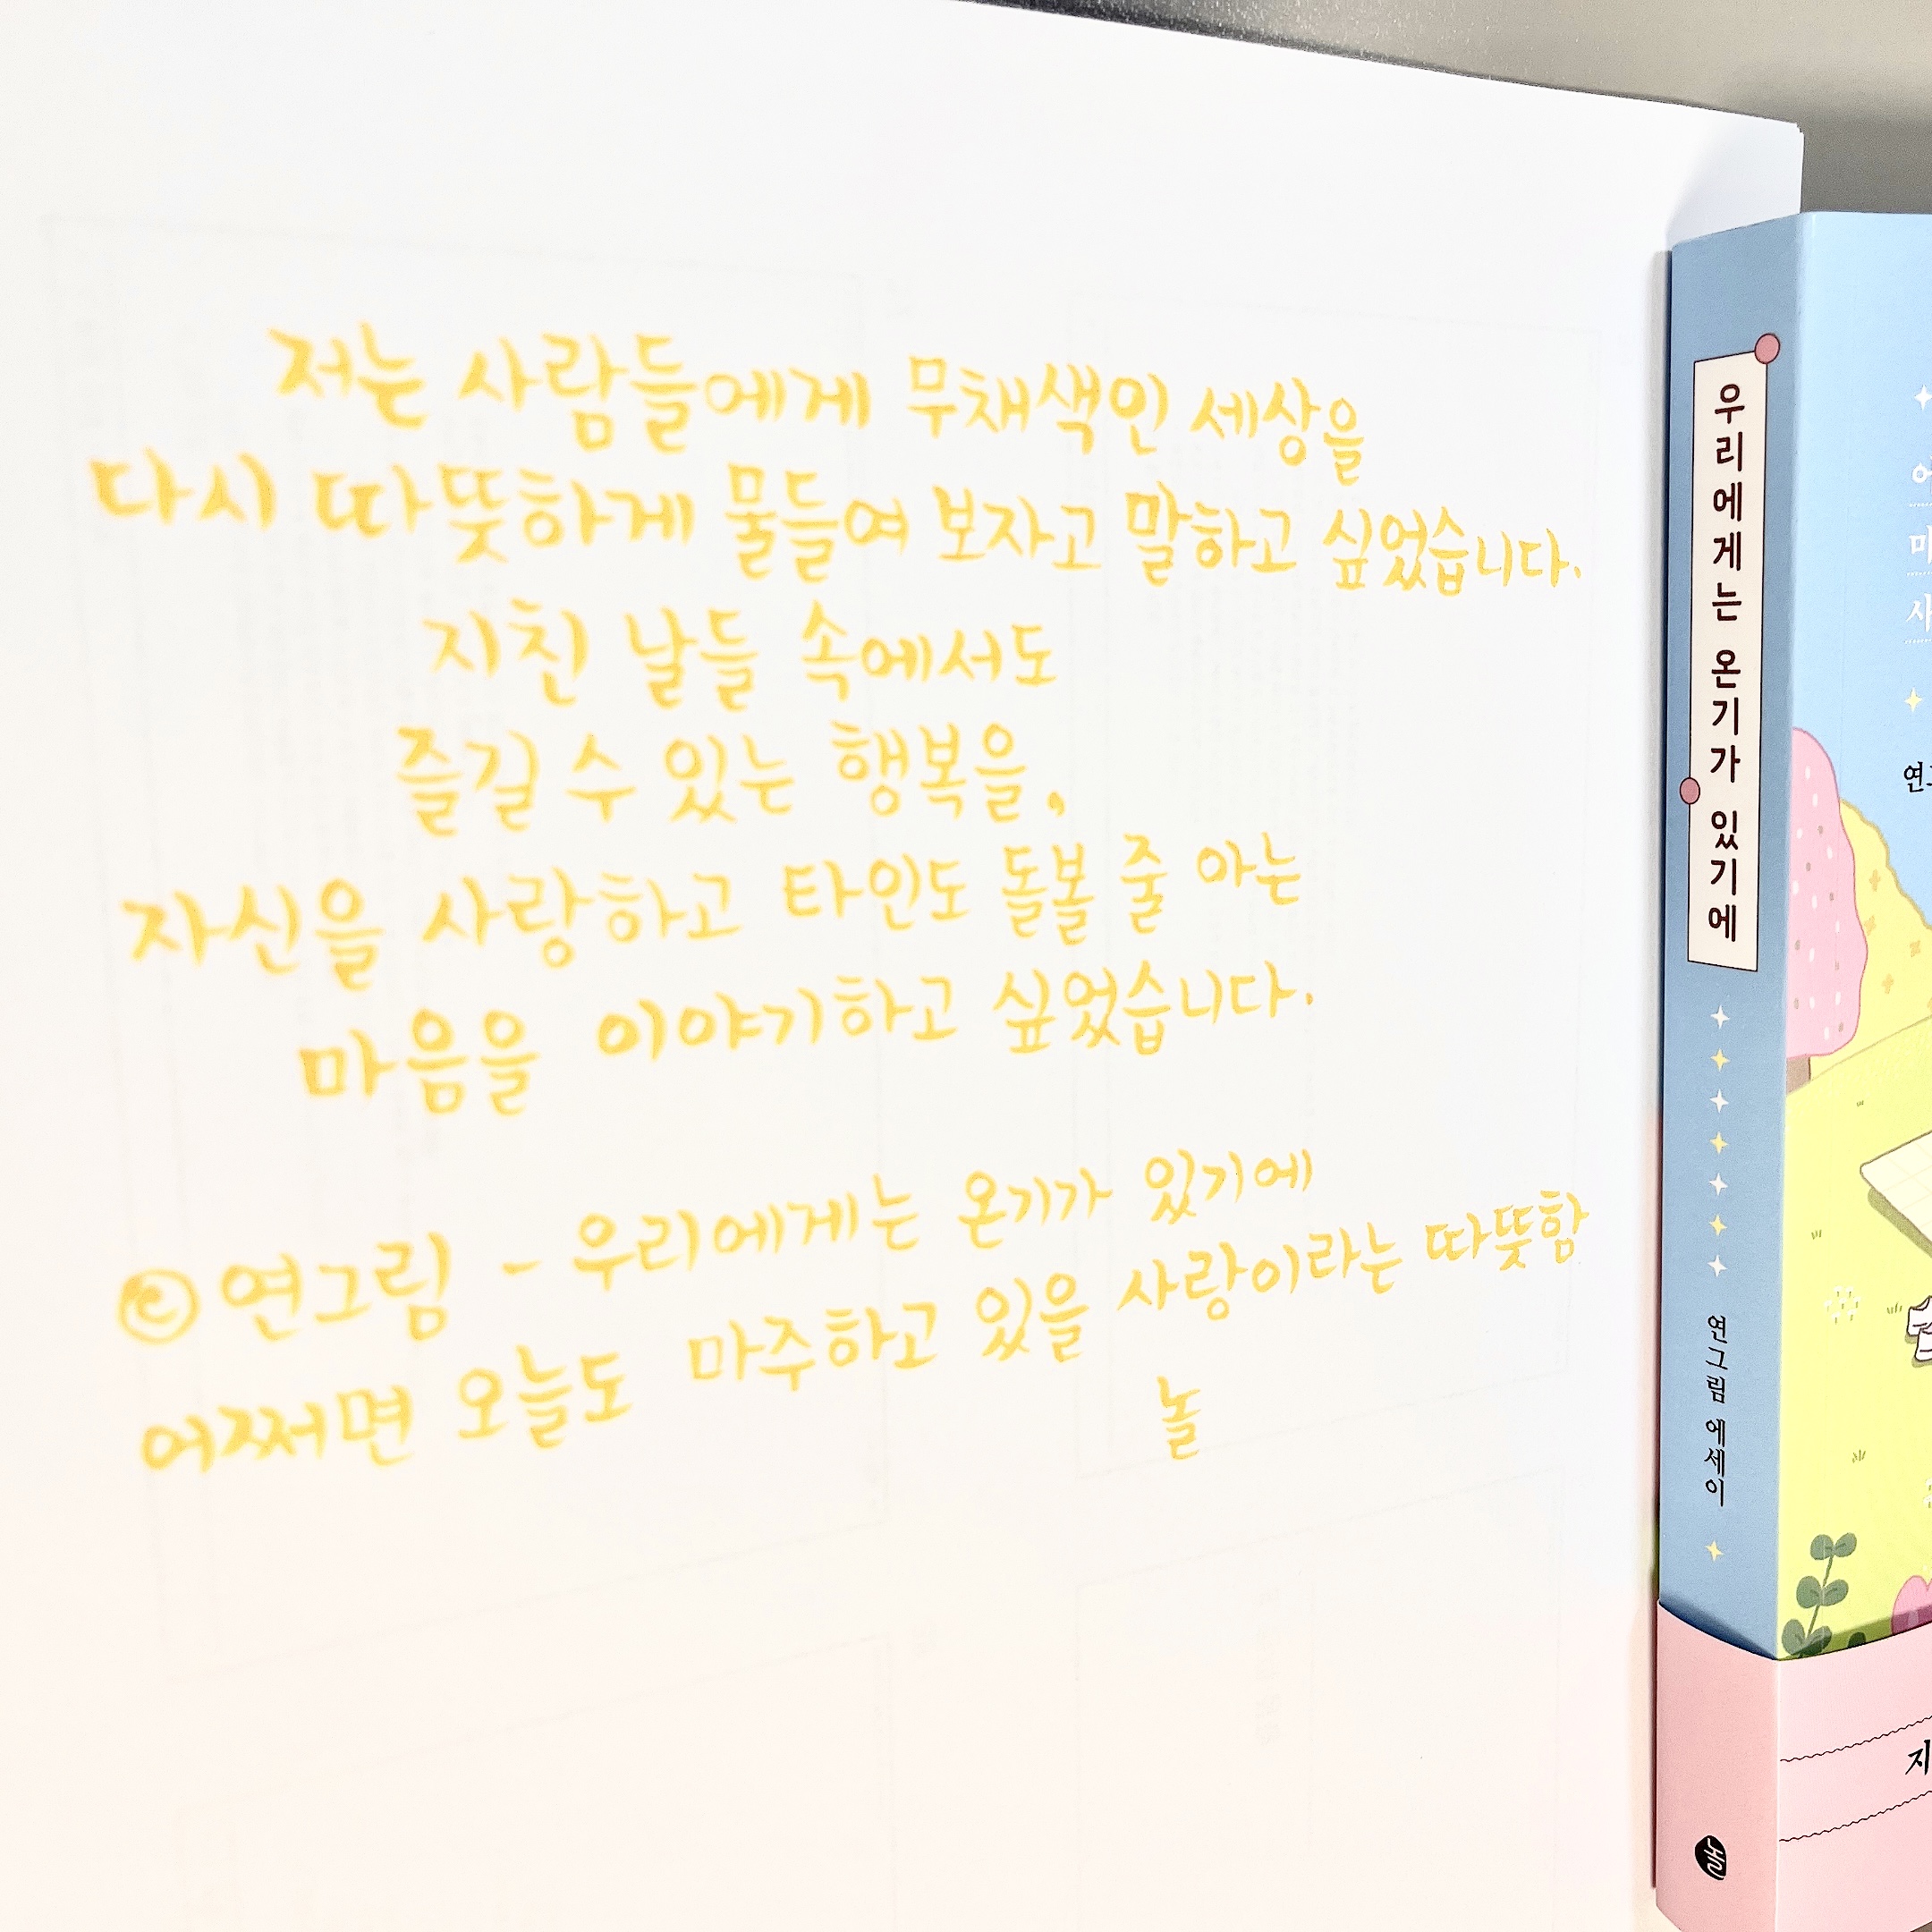 저는 사람들에게 무채색인 세상을
다시 따뜻하게 물들여 보자고 말하고 싶었습니다.
지친 날들 속에서도
즐길 수 있는 행복을,
자신을 사랑하고 타인도 돌볼 줄 아는
마음을 이야기하고 싶었습니다.
ⓒ연그림 - 우리에게는 온기가 있기에
어쩌면 오늘도 마주하고 있을 사랑이라는 따뜻함
놀
우리에게는 온기가 있기에
연그림 에세이
놀